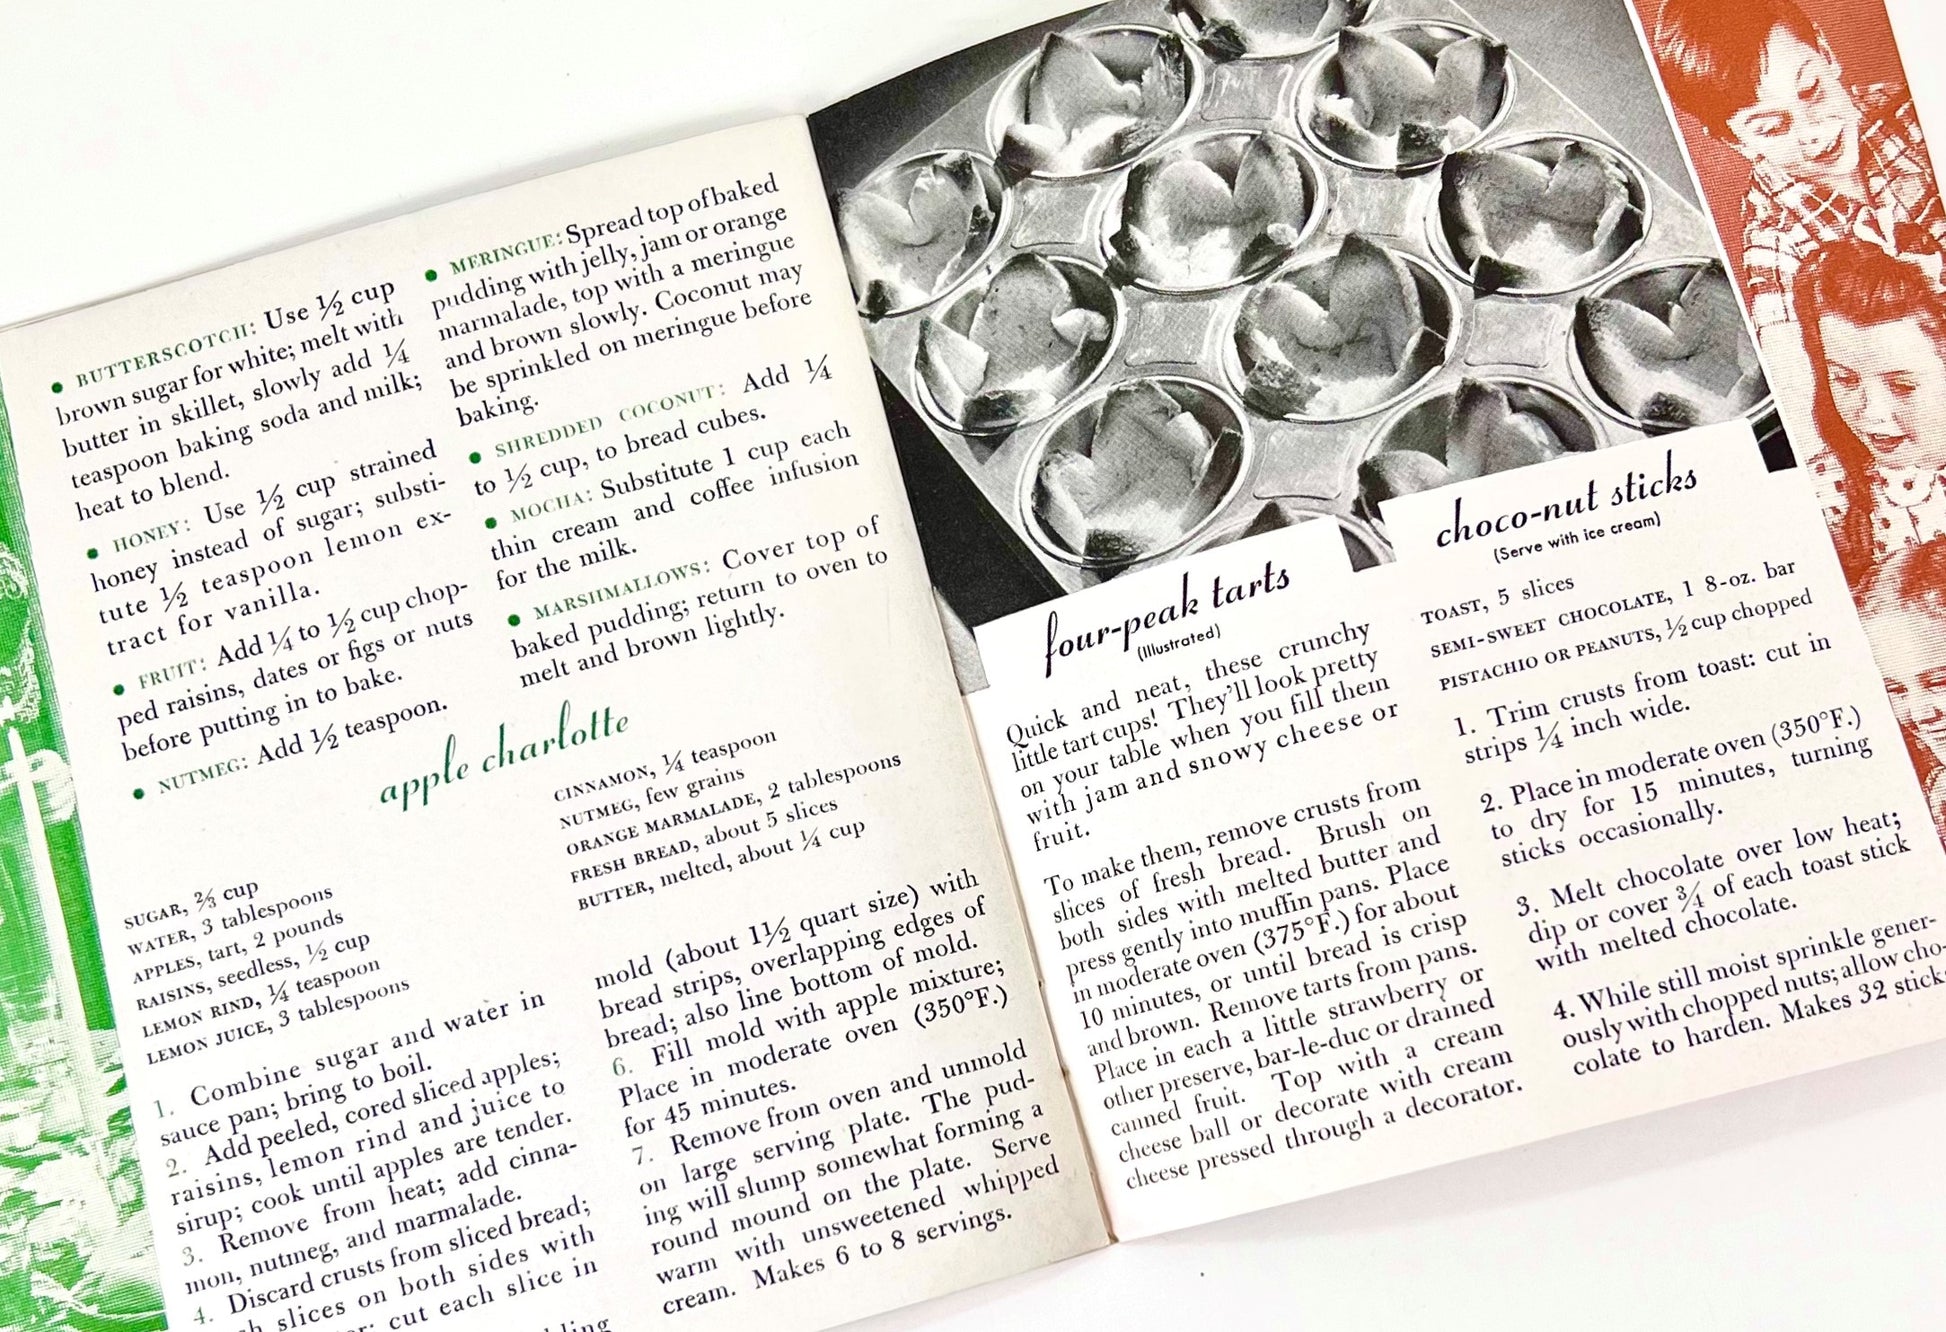 • BUTTERSCOTCH: Use ½ cup
brown sugar for white; melt with
butter in skillet, slowly add ¼
teaspoon baking soda and milk;
heat to blend.
• HONEY: Use ½ cup strained
honey instead of sugar; substi-
tute ½ teaspoon lemon ex-
tract for vanilla.
• FRUIT: Add ¼ to ½ cup chop-
ped raisins, dates or figs or nuts
before putting in to bake.
• NUTMEG: Add ½ teaspoon.
• MERINGUE: Spread top of baked
pudding with jelly, jam or orange
marmalade, top with a meringue
and brown slowly. Coconut may
be sprinkled on meringue before
baking.
• SHREDDED COCONUT: Add ¼
to ½ cup, to bread cubes.
• MOCHA: Substitute 1 cup each
thin cream and coffee infusion
for the milk.
• MARSHMALLOWS: Cover top of
baked pudding; return to oven to
melt and brown lightly.
apple charlotte
SUGAR, ⅔ cup
WATER, 3 tablespoons
APPLES, tart, 2 pounds
RAISINS, seedless, ½ cup
LEMON RIND, ¼ teaspoon
LEMON JUICE, 3 tablespoons
CINNAMON, ¼ teaspoon
NUTMEG, few grains
ORANGE MARMALADE, 2 tablespoons
FRESH BREAD, about 5 slices
BUTTER, melted, about ¼ cup
1. Combine sugar and water in
sauce pan; bring to boil.
2. Add peeled, cored sliced apples;
raisins, lemon rind and juice to
sirup; cook until apples are tender.
3. Remove from heat; add cinna-
mon, nutmeg, and marmalade.
4. Discard crusts from sliced bread;
slices on both sides with
cut each slice in
mold (about 1½ quart size) with
bread strips, overlapping edges of
bread; also line bottom of mold.
6. Fill mold with apple mixture;
Place in moderate oven (350°F.)
for 45 minutes.
7. Remove from oven and unmold
on large serving plate. The pud-
ing will slump somewhat forming a
round mound on the plate. Serve
warm with unsweetened whipped
cream. Makes 6 to 8 servings.
four-peak tarts
(Illustrated)
Quick and neat, these crunchy
little tart cups! They'll look pretty
on your table when you fill them
with jam and snowy cheese or
fruit.
To make them, remove crusts from
slices of fresh bread. Brush on
both sides with melted butter and
press gently into muffin pans. Place
in moderate oven (375°F.) for about
10 minutes, or until bread is crisp
and brown. Remove tarts from pans.
Place in each a little strawberry or
other preserve, bar-le-duc or drained
canned fruit. Top with a cream
cheese ball or decorate with cream
cheese pressed through a decorator.
choco-nut sticks
(Serve with ice cream)
TOAST, 5 slices
SEMI-SWEET CHOCOLATE, 1 8-oz. bar
PISTACHIO OR PEANUTS, ½ cup chopped
1. Trim crusts from toast: cut in
strips ¼ inch wide.
2. Place in moderate oven (350°F.)
to dry for 15 minutes, turning
sticks occasionally.
3. Melt chocolate over low heat;
dip or cover ¾ of each toast stick
with melted chocolate.
4. While still moist sprinkle gener-
ously with chopped nuts; allow cho-
colate to harden. Makes 32 stick